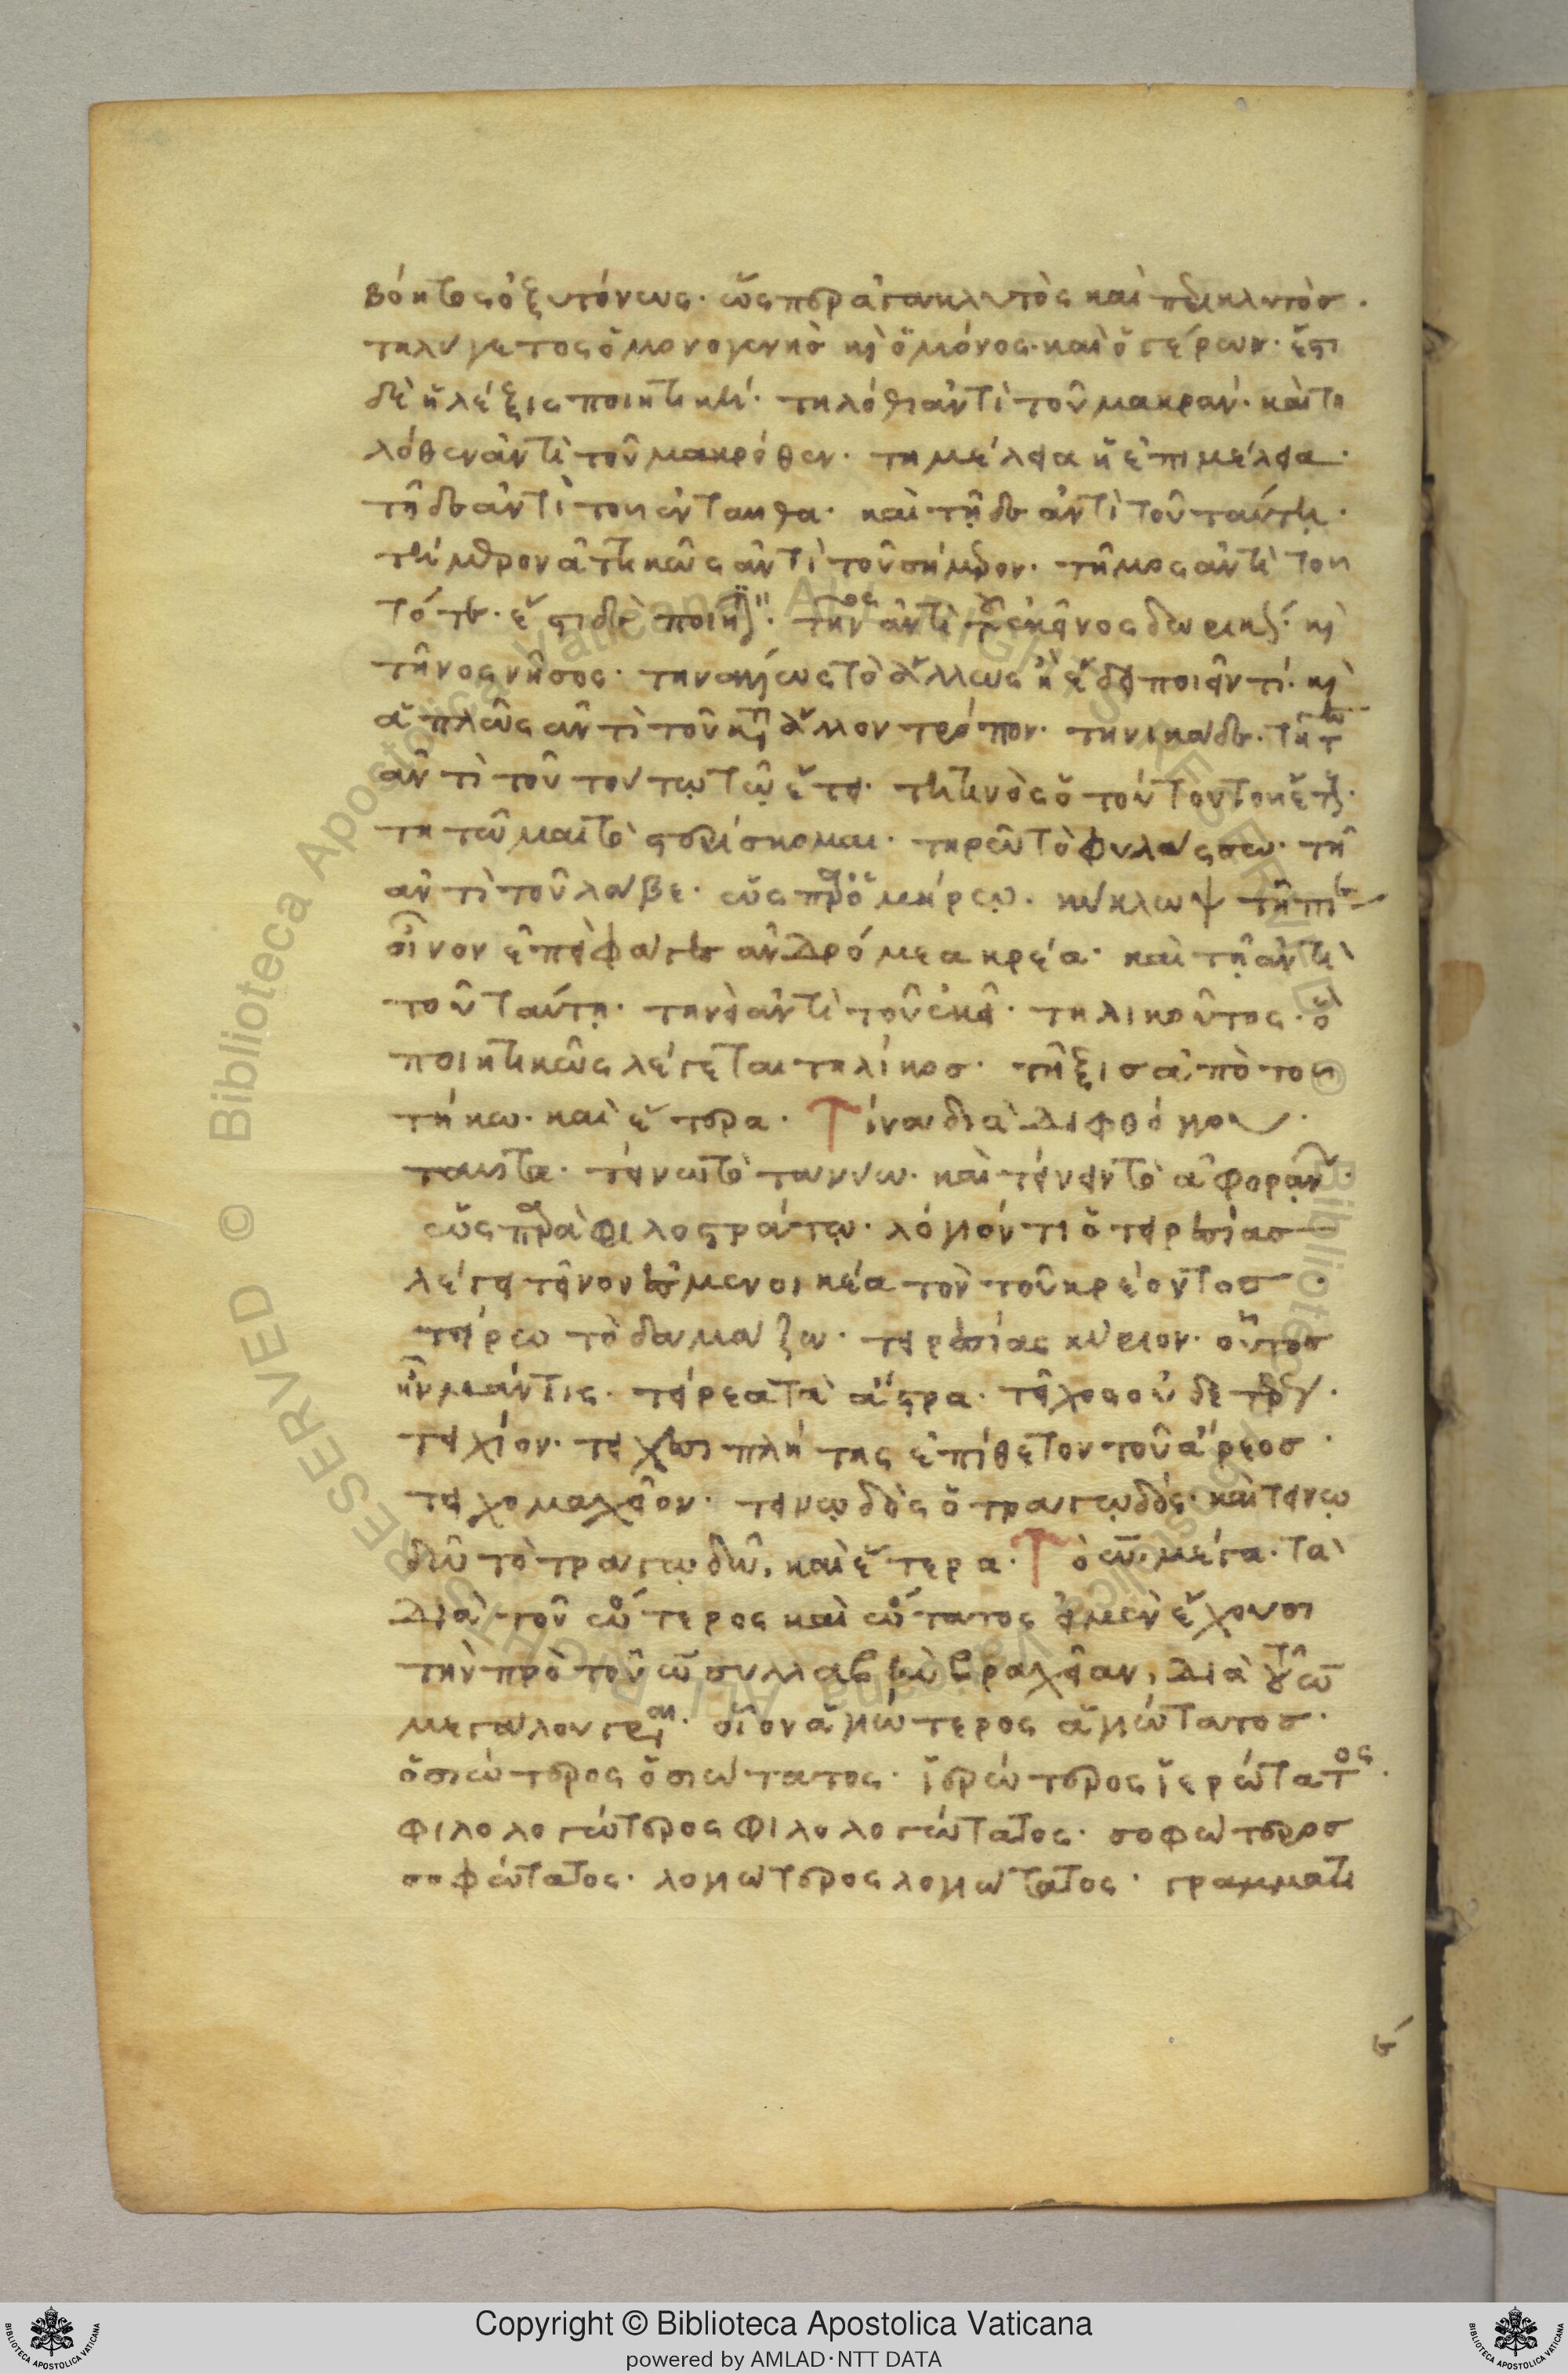 βόητος ὀξυτόνως· ὥσπερ ἀγακλυτὸς καὶ περικλυτὸσ·
τηλύγετος ὁ μονογενὴσ κỳ ὁ μόνος· καὶ ὁ γέρων· ἔστι
δὲ ἡ λέξις ποιητική· τηλόθι ἀντὶ τοῦ μακράν· καὶ τη
λόθεν ἀντὶ τοῦ μακρόθεν· τημέλεια ἡ ἐπιμέλεια·
τῆδε ἀντὶ του ἐνταυθα· καὶ τῇδε ἀντὶ τοῦ ταύτῃ·
τήμερον ἀττικῶς ἀντὶ τοῦ σήμερον· τῆμος ἀντὶ του
τότε· ἔστι δὲ ποιητ· τῆνος ἀντὶ τοῦ ἐκεῖνος δωρικῶς· κỳ
τῆνος νῆσος· τηνάλλως τὸ ἄλλως
ἁπλῶς ἀντὶ τοῦ κατ ἄλλον τρόπον· τηνικάδε·
ἀντὶ τοῦ τούτῳ τῷ ἔτει· τητινὸς ὁ τούτου τοῦ ἔτους·
τητῶμαι τὸ στερίσκομαι· τηρῶ τὸ φυλάσσω· τῆ
ἀντὶ τοῦ λάβε· ὡς παρ' ὁμήρῳ· κύκλωψ τῆ πίε
οἶνον ἐπεὶ φάγες ἀνδρόμεα κρέα· καὶ τῇ ἀντὶ
τοῦ ταύτῃ· τηνεὶ ἀντὶ τοῦ ἐκεῖ· τηλικοῦτος· ὁ
ποιητικῶς λέγεται τηλίκοσ· τῆξισ ἀπὸ του
τήκω· καὶ ἕτερα· Τίνα διὰ διφθόγγου·
ταυτα· τείνω τὸ τανύω· καὶ τείνειν τὸ ἀφορᾶν·
ὡς παρὰ φιλοστράτῳ· λόγιόν τι ὁ τειρεσίασ
λέγει τεῖνον ἐς μενοικέα τὸν τοῦ κρέοντοσ·
τείρω τὸ δαμάζω· τειρεσίας κύριον· οὗτοσ
ἦν μάντις· τείρεα τὰ ἄστρα· τεῖχος οὐδετερον·
τειχίον· τειχεσιπλήτης ἐπίθετον τοῦ ἄρεοσ·
τειχομαχεῖον·
τὸ τραγῳδῶ, καὶ ἕτερα· Τὸ ω μέγα· τὰ
διὰ τοῦ ώτερος καὶ ώτατος εἰ μὲν ἔχουσι
τὴν πρὸ τοῦ ω συλλαβὴν βραχεῖαν, διὰ τοῦ ω
μεγάλου γράφεται· οἷον ἁγιώτερος ἁγιώτατοσ·
ὁσιώτερος ὁσιώτατος· ἱερώτερος ἱερώτατος·
φιλολογώτερος φιλολογώτατος· σοφώτεροσ
σοφώτατος· λογιώτερος λογιώτατος· γραμματι
Copyright © Biblioteca Apostolica Vaticana
powered by AMLAD·NTT DATA